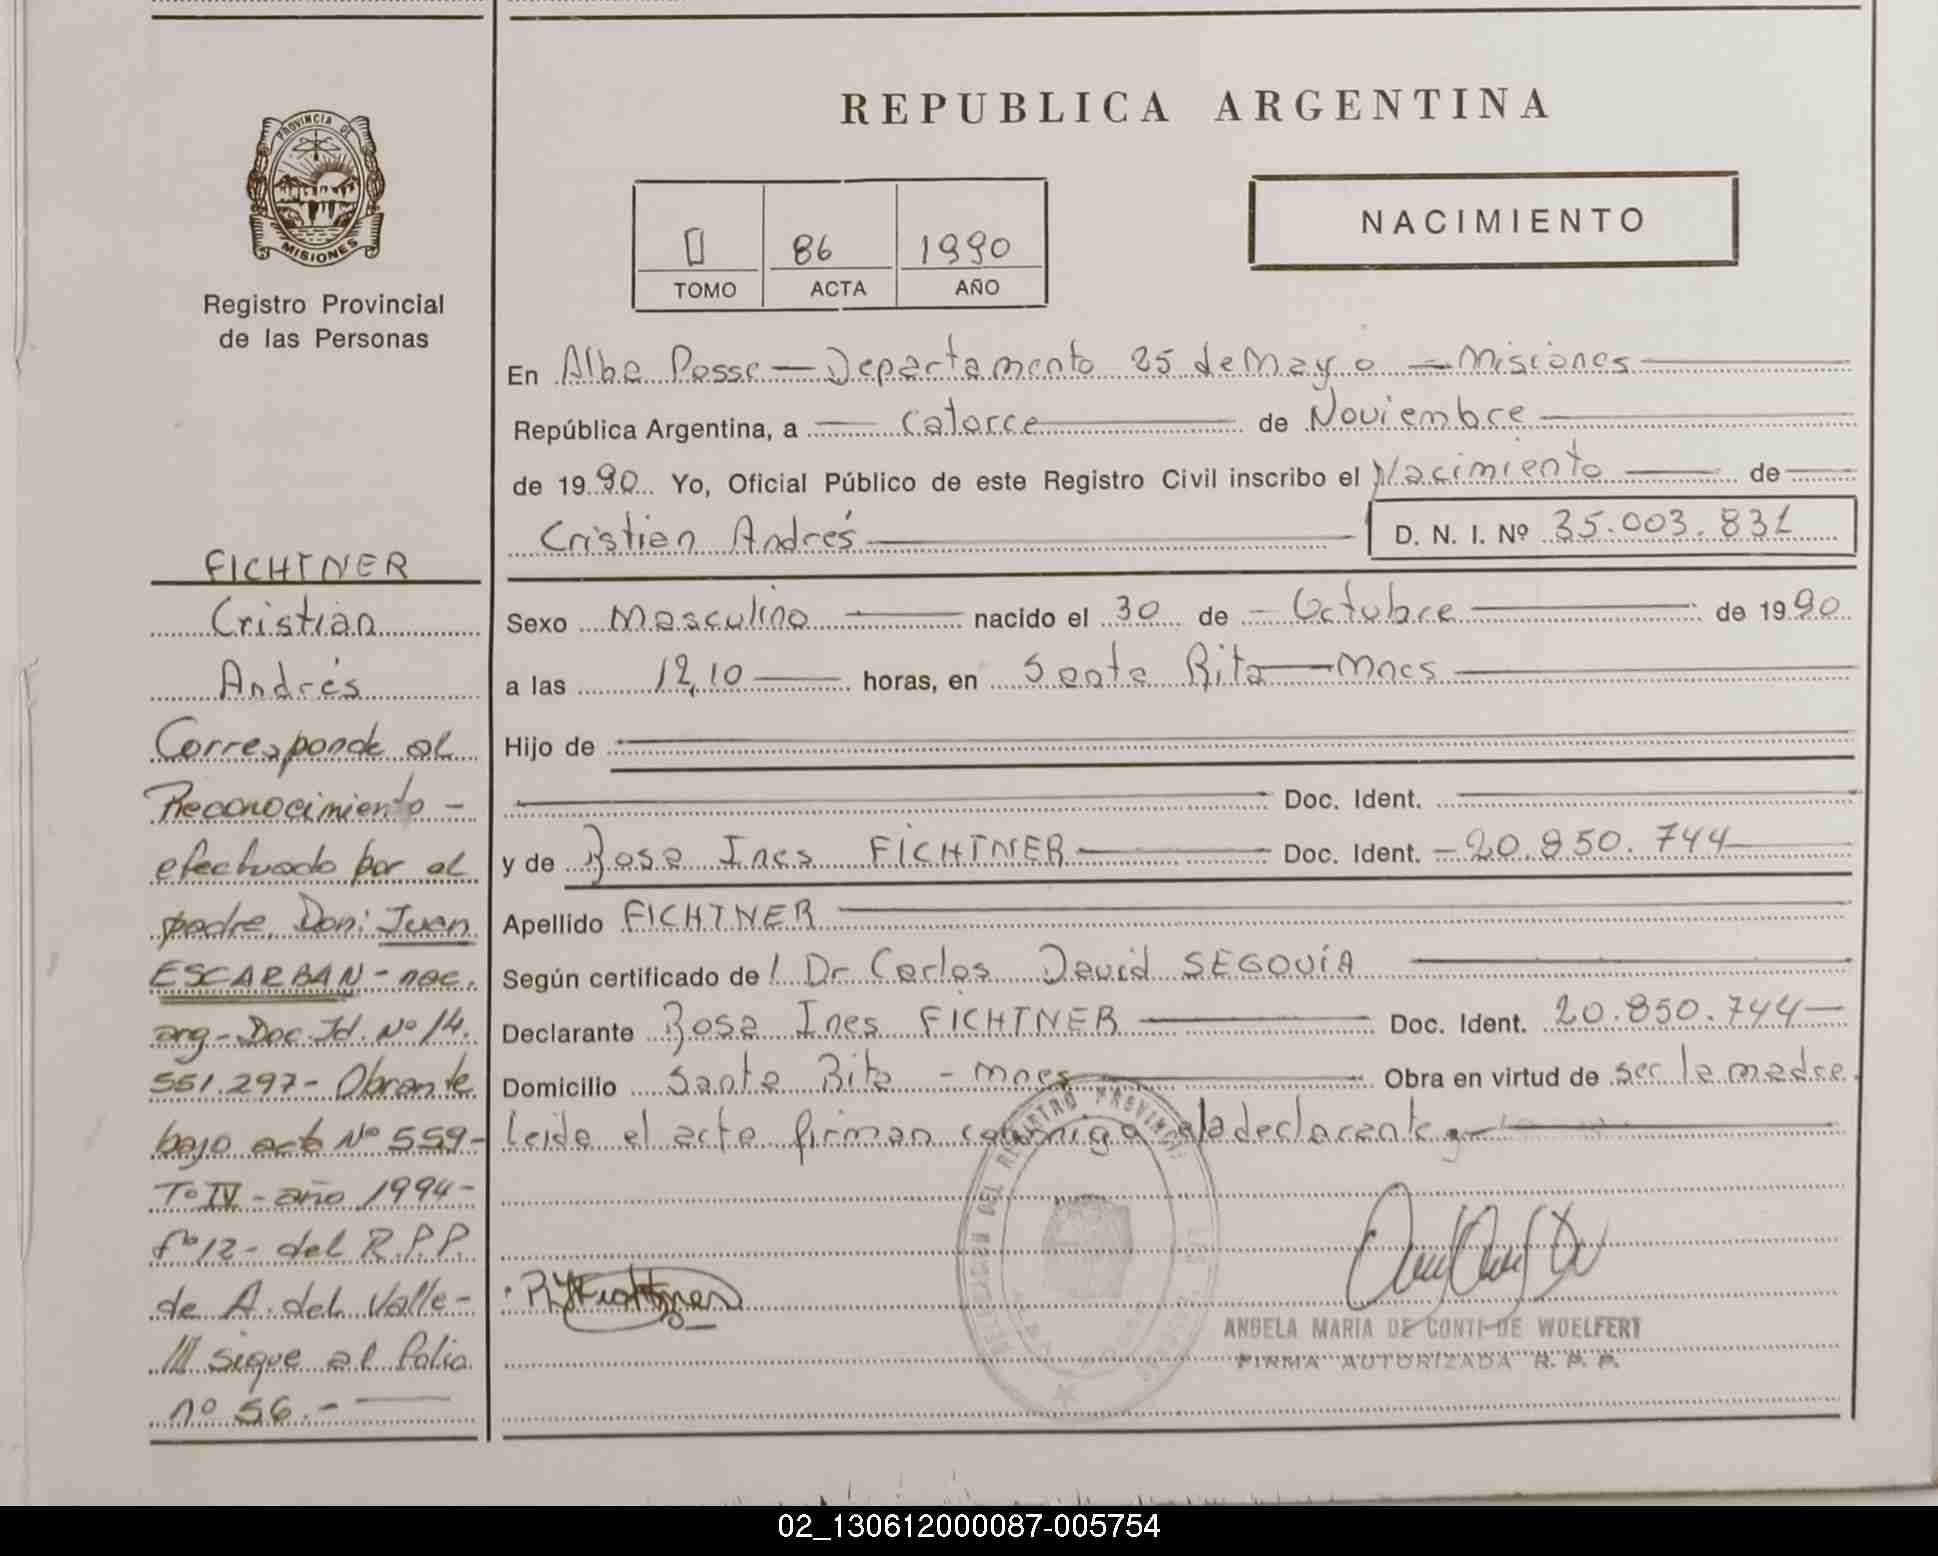 REPUBLICA ARGENTINA
PROVINCIA DE
MISIONES
Registro Provincial
de las Personas
86 1990
TOMO ACTA AÑO
NACIMIENTO
En Alba Posse — Departamento 25 de Mayo — Misiones
República Argentina, a — Catorce — de Noviembre
de 1990 Yo, Oficial Público de este Registro Civil inscribo el Nacimiento — de
Cristian Andrés — D. N. I. Nº 35.003.831
Sexo Masculino — nacido el 30 de — Octubre — de 1990
a las 12,10 — horas, en Santa Rita — Mnes
Hijo de
Doc. Ident.
y de Rosa Ines FICHTNER — Doc. Ident. — 20.850.744
Apellido FICHTNER
Según certificado de Dr. Carlos David SEGOVÍA
Declarante Rosa Ines FICHTNER — Doc. Ident. 20.850.744 —
Domicilio Santa Rita - Mnes — Obra en virtud de ser la madre.
Leida el acta firman conmigo la declarante
ANGELA MARIA DE CONTI DE WOELFERT
FIRMA AUTORIZADA R. P. P.
FICHTNER
Cristian
Andrés
Corresponde al
Reconocimiento -
efectuado por el
padre. Don: Juan
ESCARBAN - nac.
arg - Doc. Id. Nº 14.
551.297 - Obrante
bajo acta Nº 559 -
Tº IV - año 1994 -
fº 12 - del R.P.P.
de A. del Valle -
/// sigue al folio
nº 56. -
02_130612000087-005754